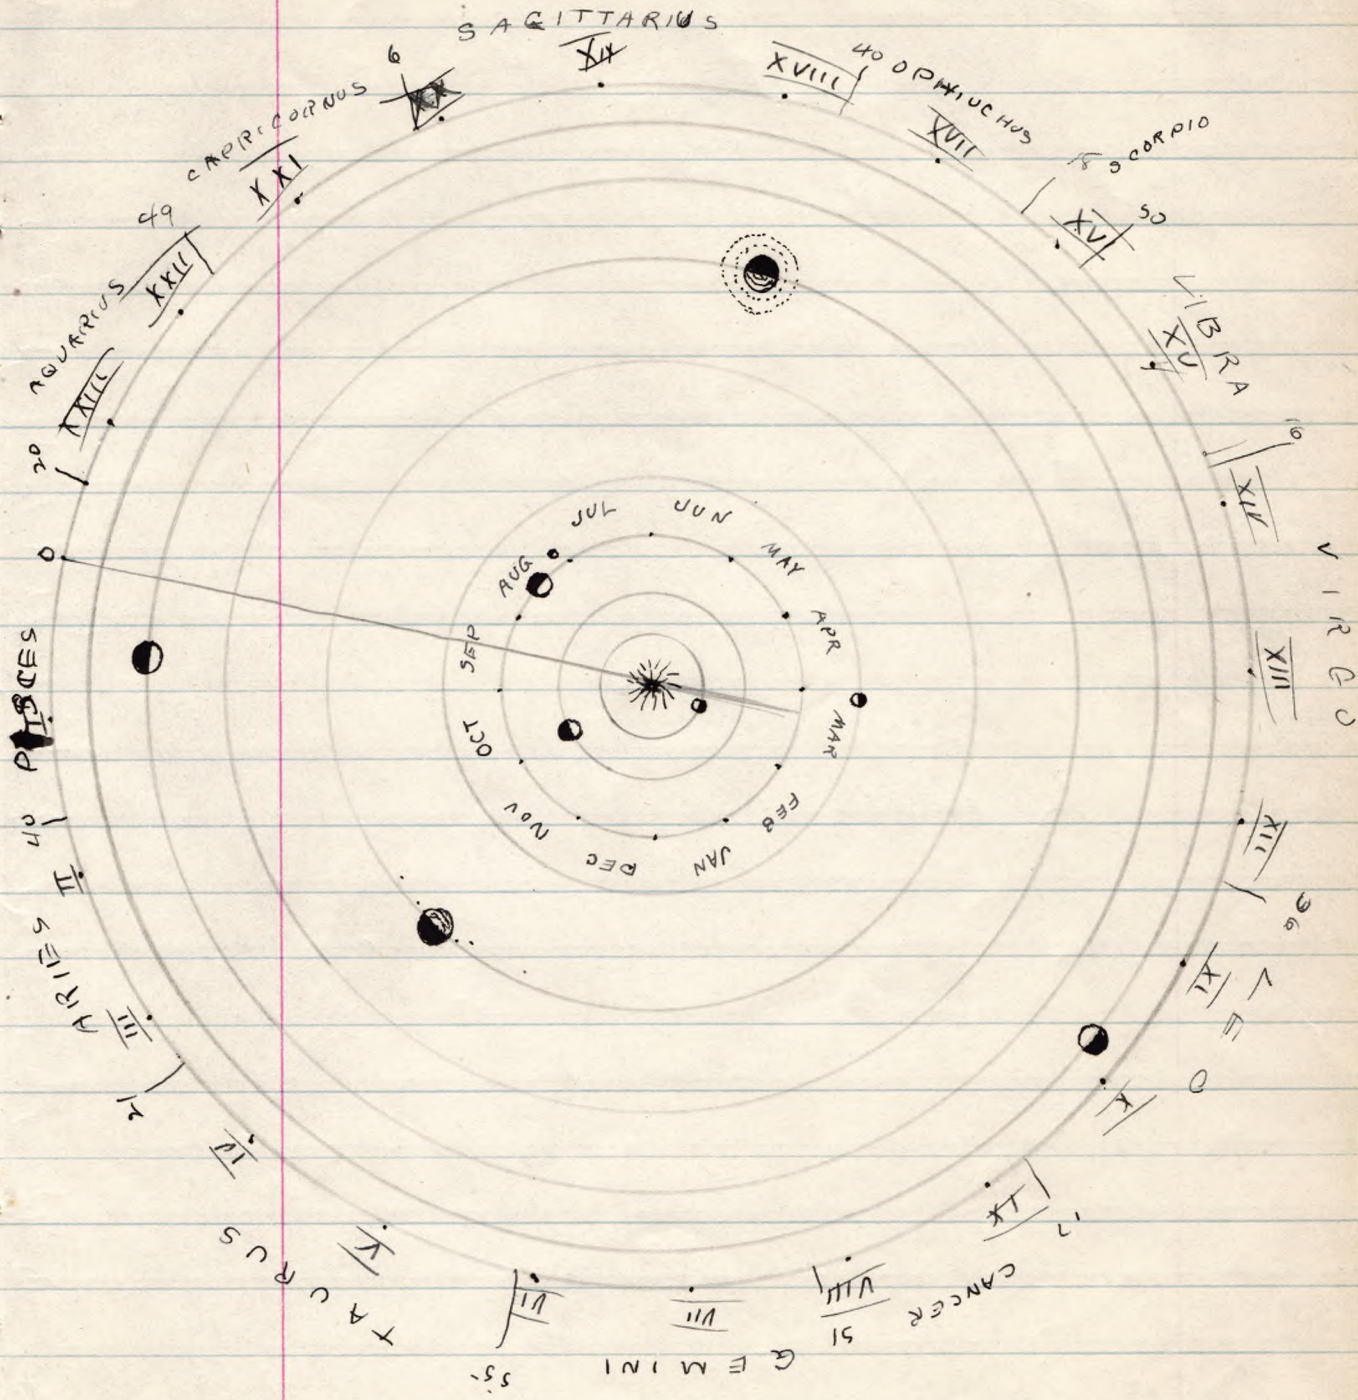 SAGITTARIUS
XIX
XVIII
40 OPHIUCHUS
XVII
SCORPIO
XVI
50
LIBRA
XV
16
XIV
VIRGO
XIII
XII
36
XI
LEO
X
17
IX
CANCER
VIII
51
GEMINI
VII
VI
55
TAURUS
V
IV
21
III
ARIES
II
40
PISCES
0
20
XXIII
AQUARIUS
XXII
49
XXI
CAPRICORNUS
XX
6
JUN
MAY
APR
MAR
FEB
JAN
DEC
NOV
OCT
SEP
AUG
JUL